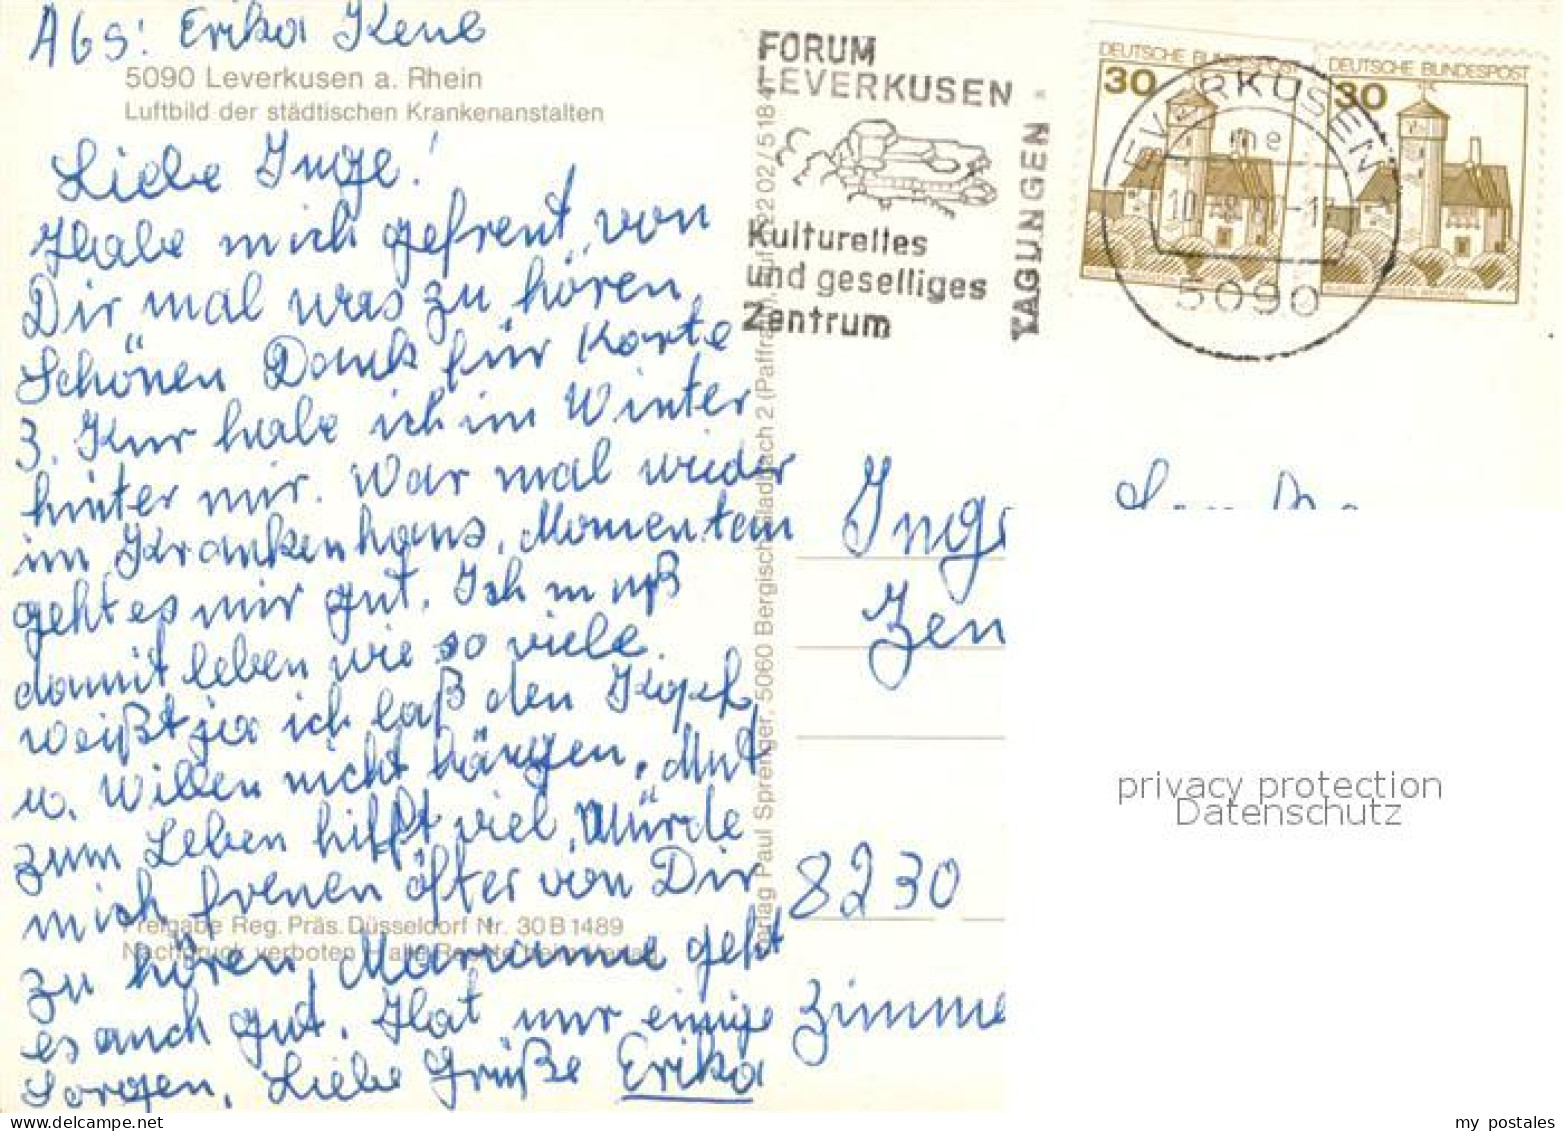 Abs: Erika Kene
5090 Leverkusen a. Rhein
Luftbild der städtischen Krankenanstalten
Liebe Inge!
Habe mich gefreut, von
Dir mal was zu hören.
Schönen Dank für Karte
3. Kur habe ich im Winter
hinter mir. War mal wieder
im Krankenhaus, Momentan
geht es mir gut. Ich muß
damit leben wie so viele.
weißt ja ich laß den Kopf
u. Willen nicht hängen. Mut
zum Leben hilft viel. Würde
mich freuen öfter von Dir
Freigabe Reg. Präs. Düsseldorf Nr. 30 B 1489
Nachdruck verboten
zu hören. Marianne geht
es auch gut. Hat nur einige
Sorgen. Liebe Grüße Erika
Verlag Paul Sprenger, 5060 Bergisch Gladbach 2 (Paffrath) 02/5184
FORUM
LEVERKUSEN
Kulturelles
und geselliges
Zentrum
TAGUNGEN
DEUTSCHE BUNDESPOST
30
DEUTSCHE BUNDESPOST
30
LEVERKUSEN
5090
Inge
Zen
8230
Zimme
privacy protection
Datenschutz
my postales